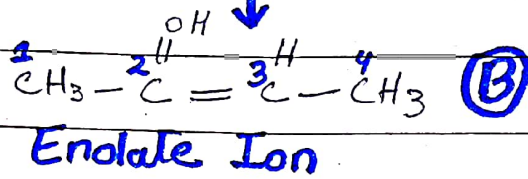 OH
1 2 H 3 4
CH3 - C = C - CH3 B
Enolate Ion